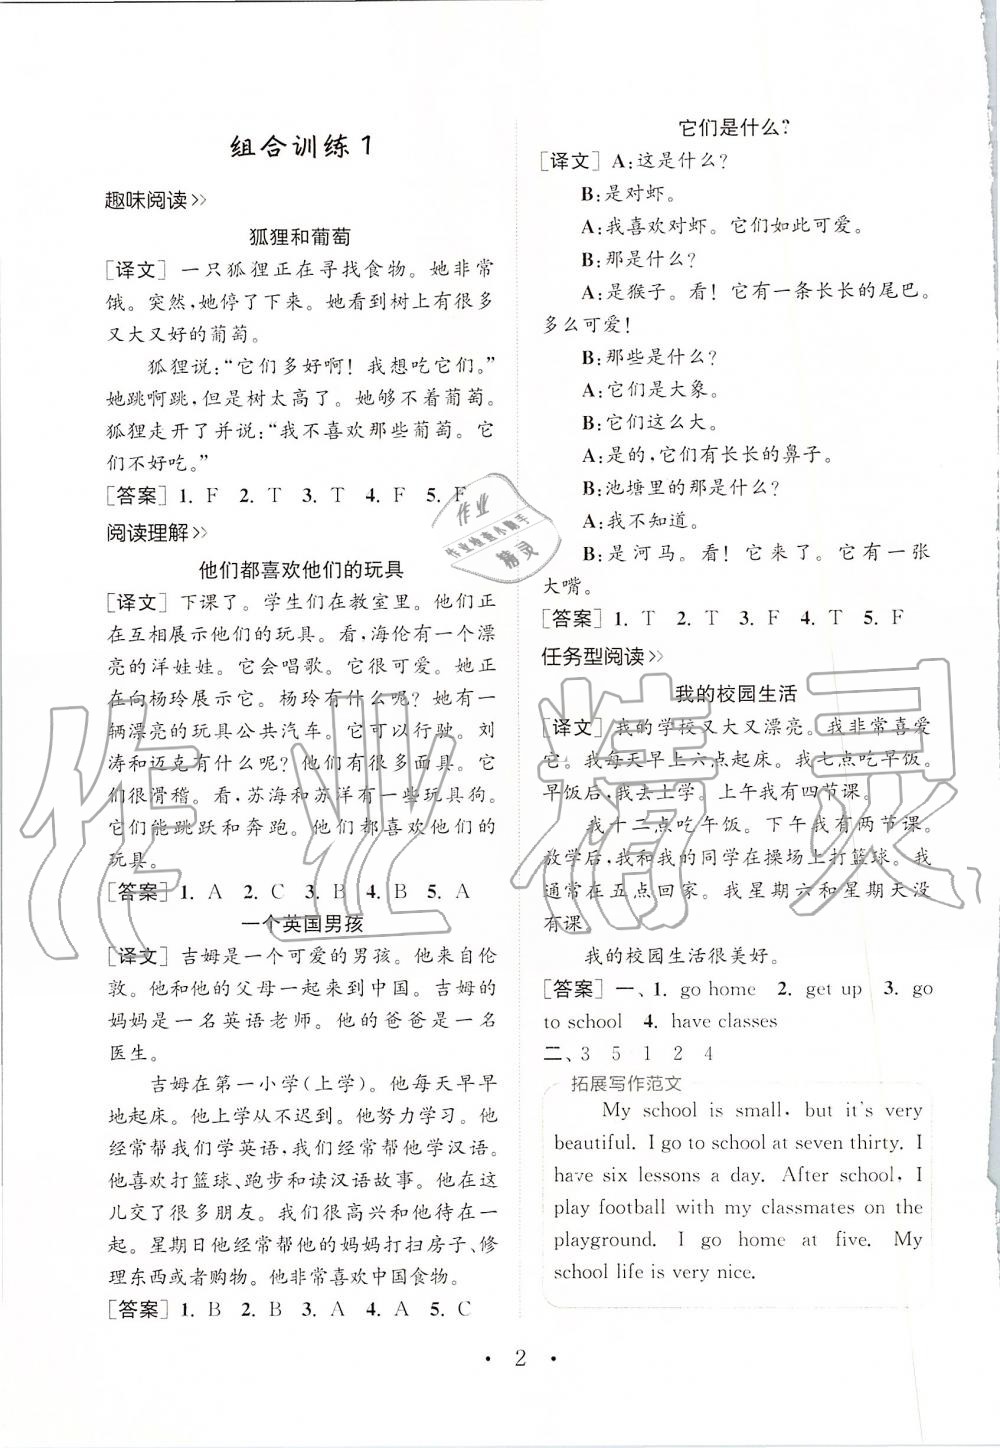 组合训练1
趣味阅读>>
狐狸和葡萄
[译文] 一只狐狸正在寻找食物。她非常
饿。突然，她停了下来。她看到树上有很多
又大又好的葡萄。
狐狸说：“它们多好啊！我想吃它们。”
她跳啊跳，但是树太高了。她够不着葡萄。
狐狸走开了并说：“我不喜欢那些葡萄。它
们不好吃。”
[答案] 1. F 2. T 3. T 4. F 5. F
阅读理解>>
他们都喜欢他们的玩具
[译文] 下课了。学生们在教室里。他们正
在互相展示他们的玩具。看，海伦有一个漂
亮的洋娃娃。它会唱歌。它很可爱。她正
在向杨玲展示它。杨玲有什么呢？她有一
辆漂亮的玩具公共汽车。它可以行驶。刘
涛和迈克有什么呢？他们有很多面具。它
们很滑稽。看，苏海和苏洋有一些玩具狗。
它们能跳跃和奔跑。他们都喜欢他们的
玩具。
[答案] 1. A 2. C 3. B 4. B 5. A
一个英国男孩
[译文] 吉姆是一个可爱的男孩。他来自伦
敦。他和他的父母一起来到中国。吉姆的
妈妈是一名英语老师。他的爸爸是一名
医生。
吉姆在第一小学(上学)。他每天早早
地起床。他上学从不迟到。他努力学习。他
经常帮我们学英语，我们经常帮他学汉语。
他喜欢打篮球、跑步和读汉语故事。他在这
儿交了很多朋友。我们很高兴和他待在一
起。星期日他经常帮他的妈妈打扫房子、修
理东西或者购物。他非常喜欢中国食物。
[答案] 1. B 2. B 3. A 4. A 5. C
它们是什么？
[译文] A：这是什么？
B：是对虾。
A：我喜欢对虾。它们如此可爱。
B：那是什么？
A：是猴子。看！它有一条长长的尾巴。
多么可爱！
B：那些是什么？
A：它们是大象。
B：它们这么大。
A：是的，它们有长长的鼻子。
B：池塘里的那是什么？
A：我不知道。
B：是河马。看！它来了。它有一张
大嘴。
[答案] 1. T 2. T 3. F 4. T 5. F
任务型阅读>>
我的校园生活
[译文] 我的学校又大又漂亮。我非常喜爱
它。我每天早上六点起床。我七点吃早饭。
早饭后，我去上学。上午我有四节课。
我十二点吃午饭。下午我有两节课。
放学后，我和我的同学在操场上打篮球。我
通常在五点回家。我星期六和星期天没
有课。
我的校园生活很美好。
[答案] 一、1. go home 2. get up 3. go
to school 4. have classes
二、3 5 1 2 4
拓展写作范文
My school is small, but it's very
beautiful. I go to school at seven thirty. I
have six lessons a day. After school, I
play football with my classmates on the
playground. I go home at five. My
school life is very nice.
· 2 ·
作业
作业检查小助手
精灵
作业精灵